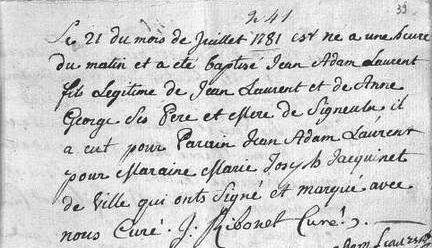 39
Le 21 du mois de Juillet 1781 est né a une heure
du matin et a eté baptisé Jean Adam Laurent
fils Legitime de Jean Laurent et de Anne
George Ses Pere et Mere de Signeulx il
a eut pour Parain Jean Adam Laurent
pour Maraine Marie Joseph Jacquinet
de Ville qui onts Signé et marqué avec
nous Curé. J. Ribonet Curé